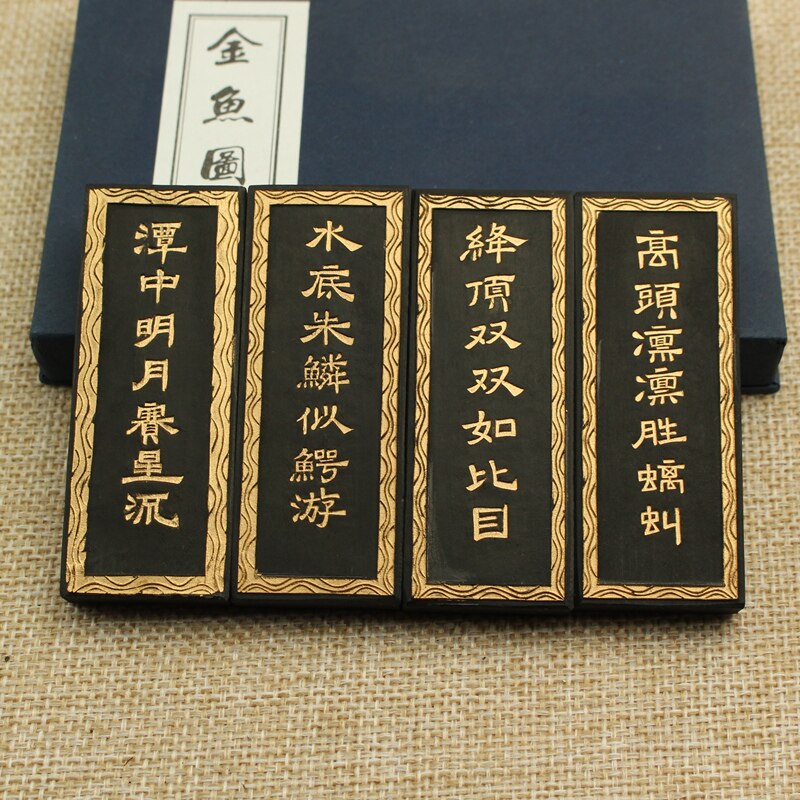 金魚圖
潭中明月賽星沉
水底朱鱗似鰐游
絳頂双双如比目
高頭凛凛胜螭虬